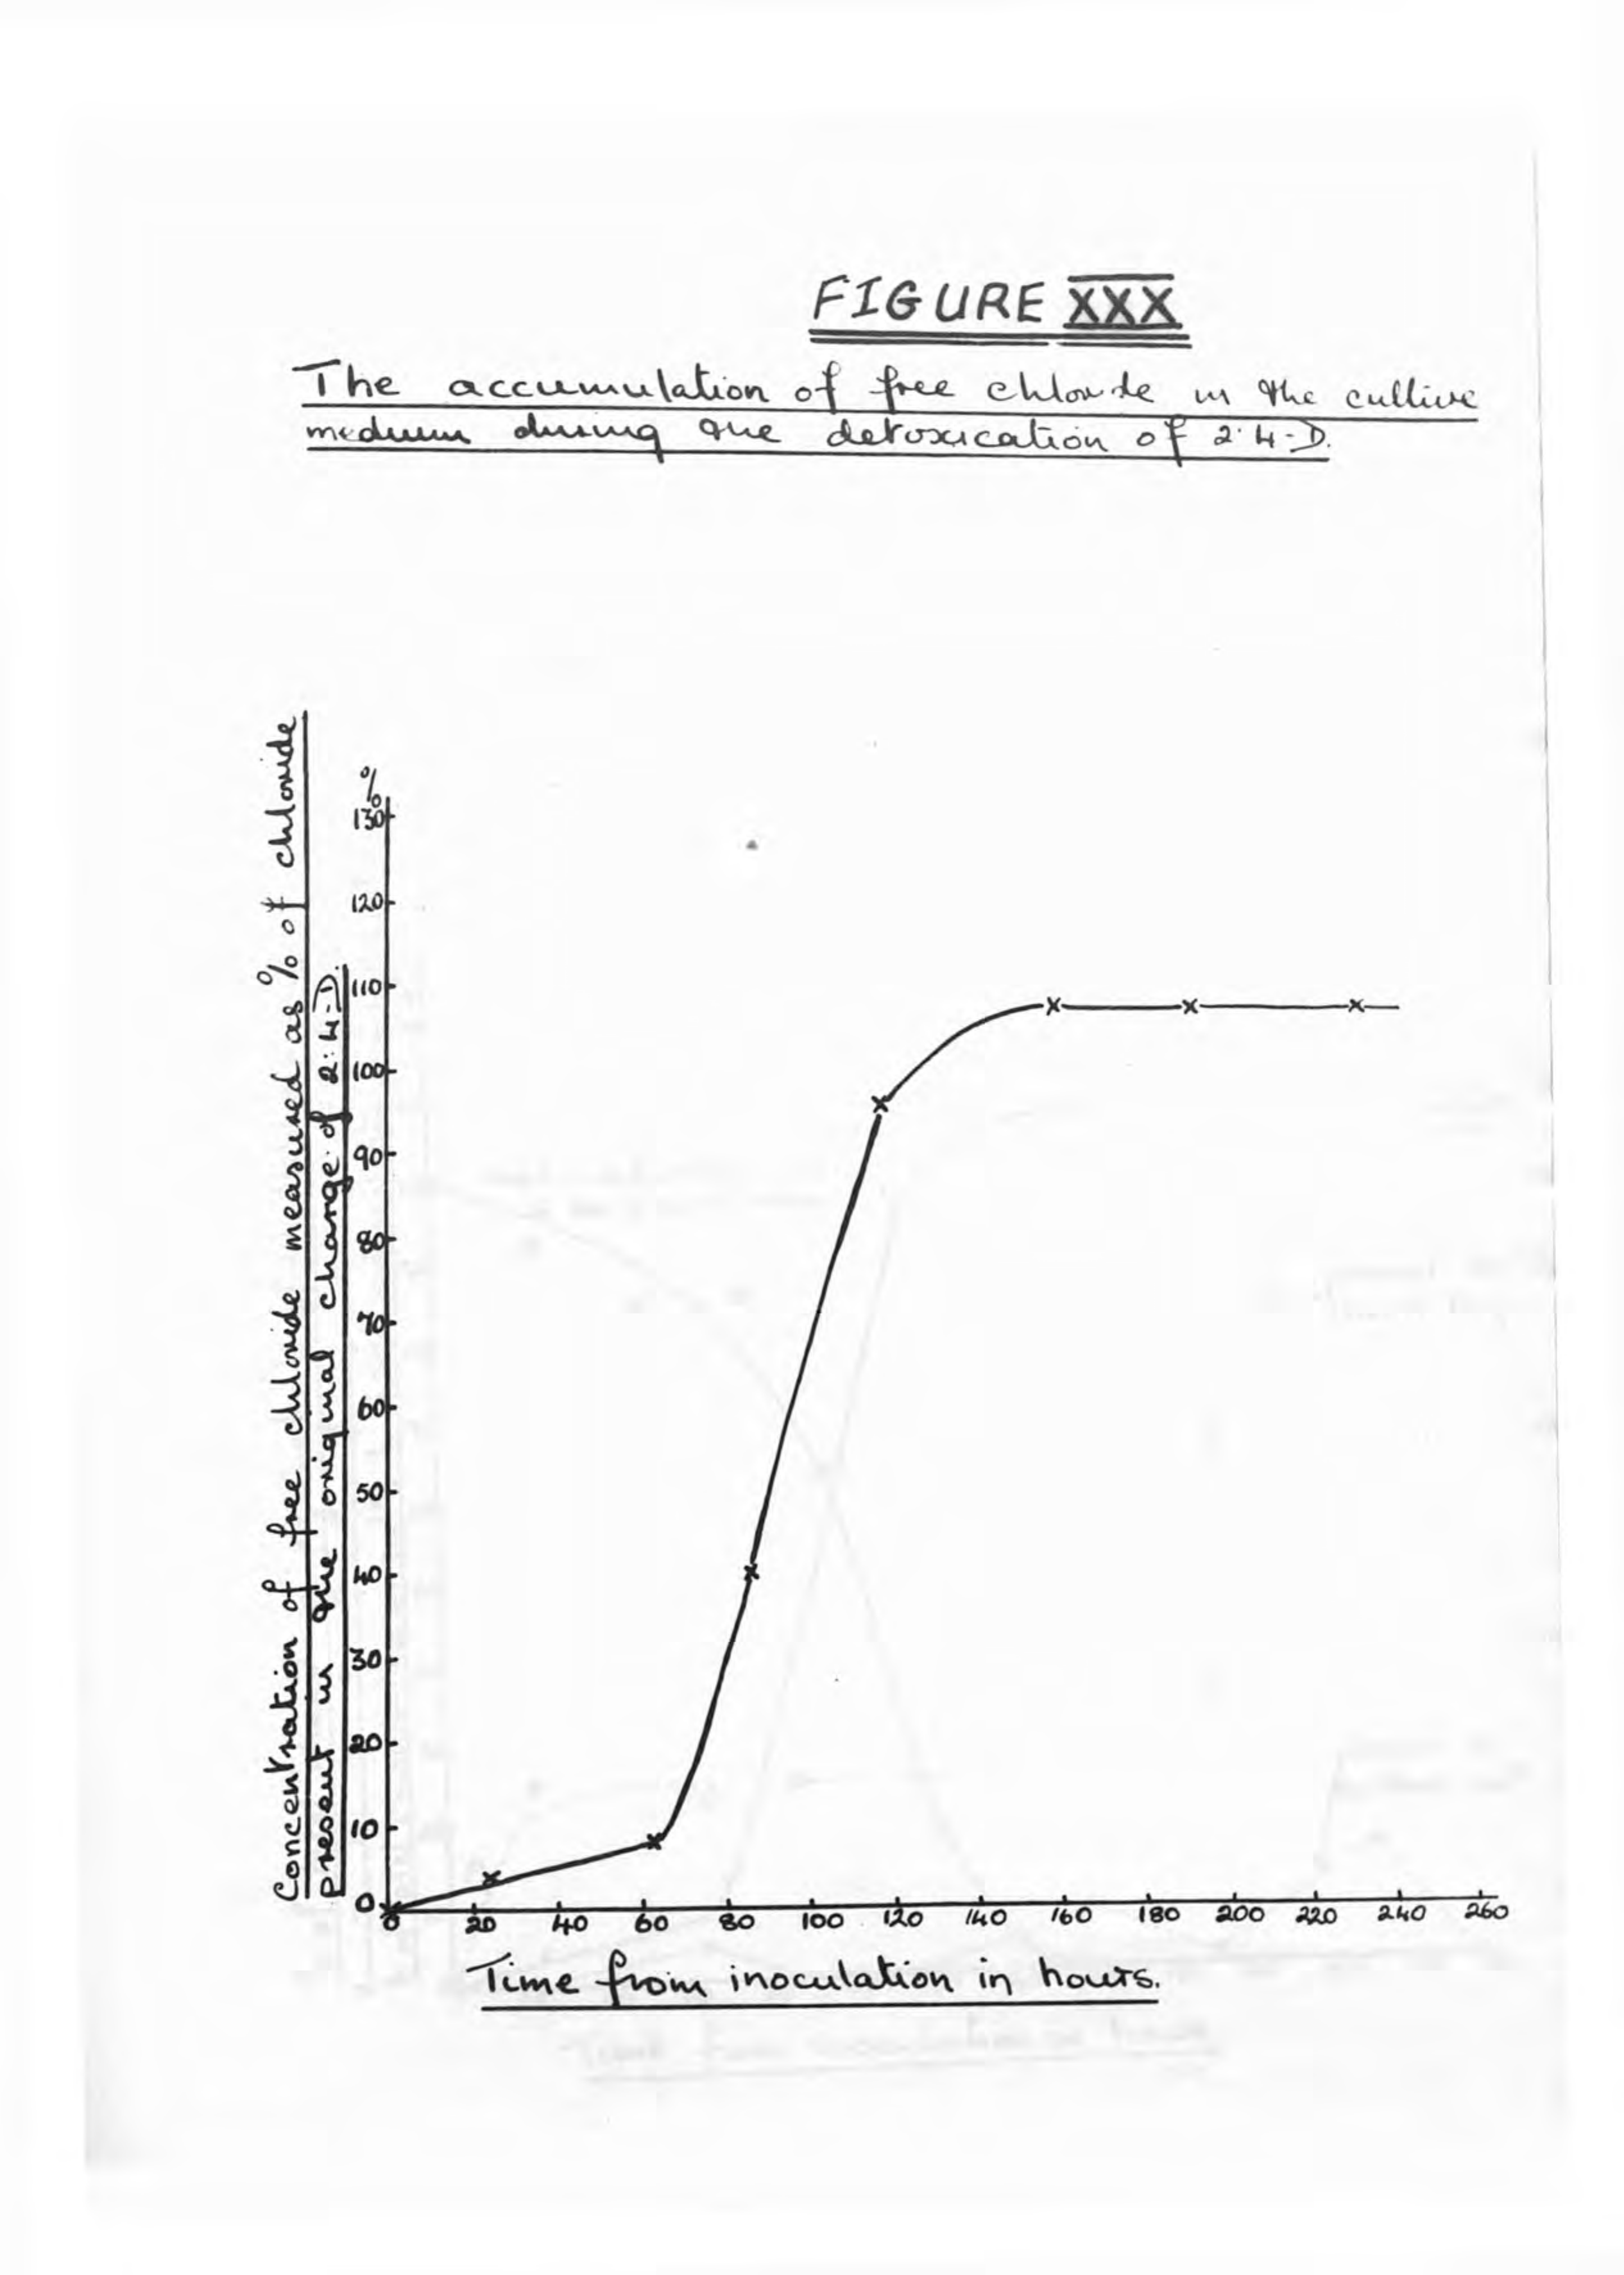 FIGURE XXX
The accumulation of free chloride in the culture
medium during the detoxication of 2:4-D.
Concentration of free chloride measured as % of chloride
present in the original charge of 2:4-D.
%
130
120
110
100
90
80
70
60
50
40
30
20
10
0
0 20 40 60 80 100 120 140 160 180 200 220 240 260
Time from inoculation in hours.